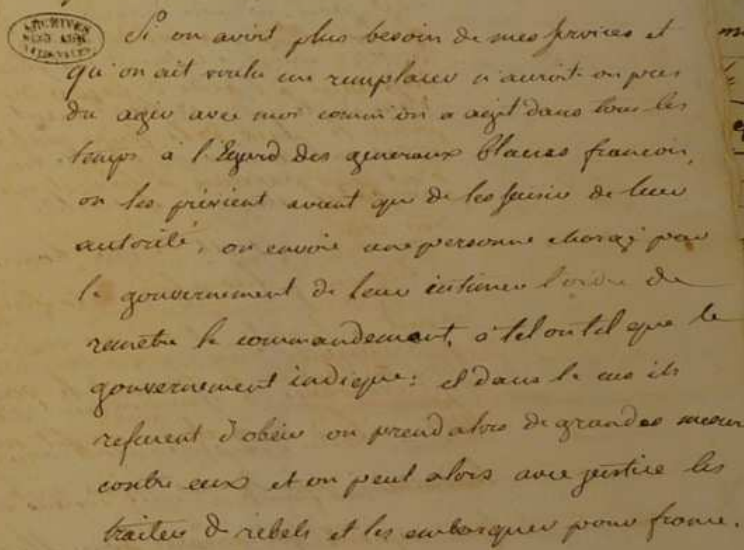 ARCHIVES
NATIONALES
Si on avoit plus besoin de mes services et
qu'on ait voulu me remplacer n'auroit-on pas
du agir avec moi comm'on a agit dans tous les
temps à l'Egard des generaux blancs francois,
on les prévient avant que de les saisir de leur
autorité, on envoie une personne chargé par
le gouvernement de leur intimer l'ordre de
remetre le commandement, à tel ou tel que le
gouvernement indique: et dans le cas ils
refusent d'obéir on prend alors de grandes mesur
contre eux et on peut alors avec justice les
traiter de rébels et les embarquer pour france.